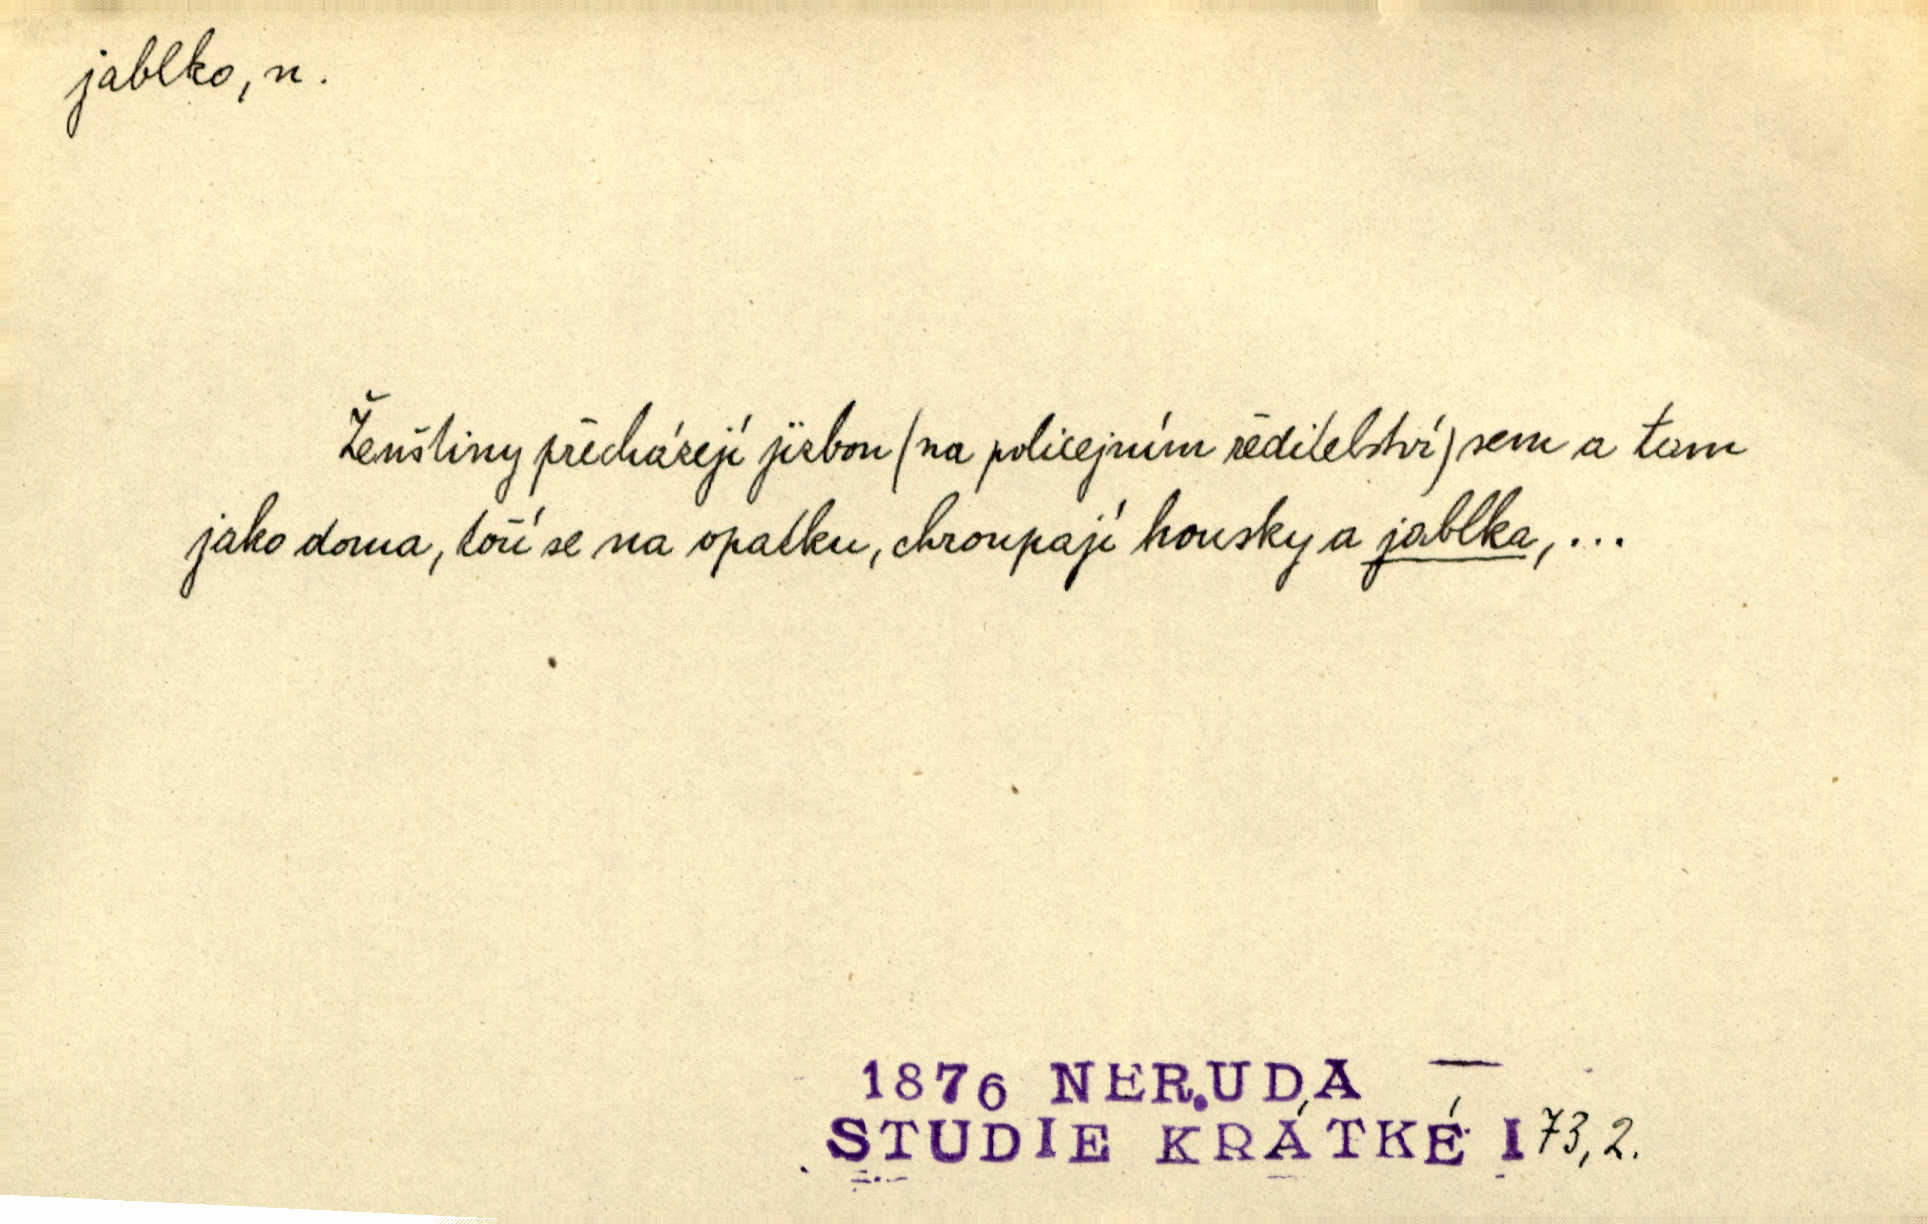 jablko, n.
Ženštiny přecházejí jizbou (na policejním ředitelství) sem a tam
jako doma, točí se na opatku, chroupají housky a jablka, ...
1876 NERUDA —
STUDIE KRÁTKÉ I 73, 2.